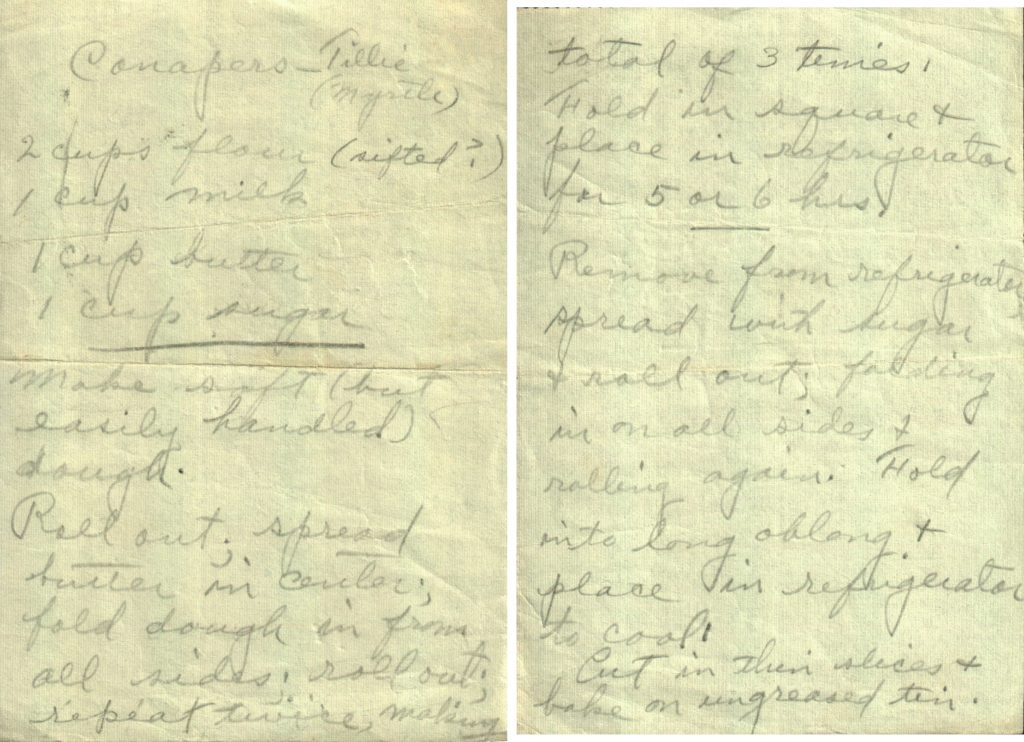 Conapers - Tillie
(Myrtle)
2 cups flour (sifted?)
1 cup milk
1 cup butter
1 cup sugar
Make soft (but
easily handled)
dough.
Roll out; spread
butter in center;
fold dough in from
all sides; roll out;
repeat twice, making
total of 3 times.
Fold in square &
place in refrigerator
for 5 or 6 hrs.
Remove from refrigerator
spread with sugar
& roll out; folding
in on all sides &
rolling again. Fold
into long oblong &
place in refrigerator
to cool.
Cut in thin slices &
bake on ungreased tin.